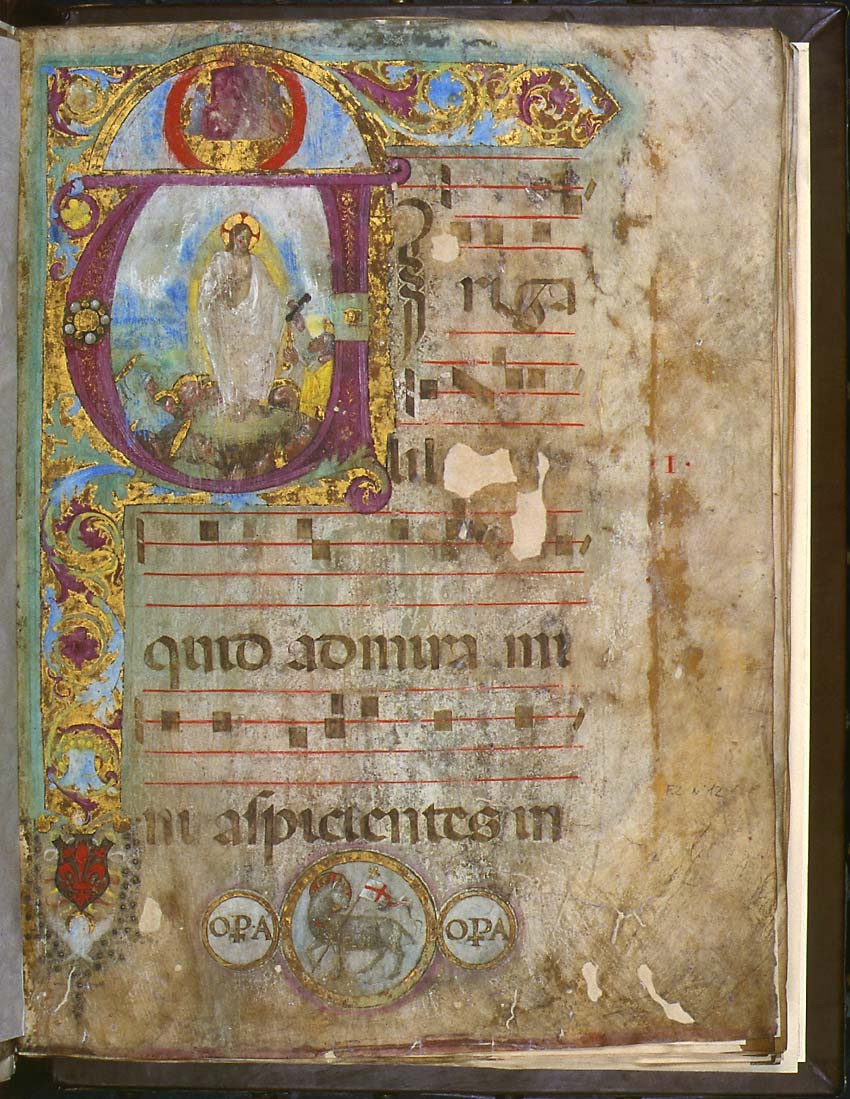 VIri ga
lil
I·
quid admira mi
ni aspicientes in
OPA OPA